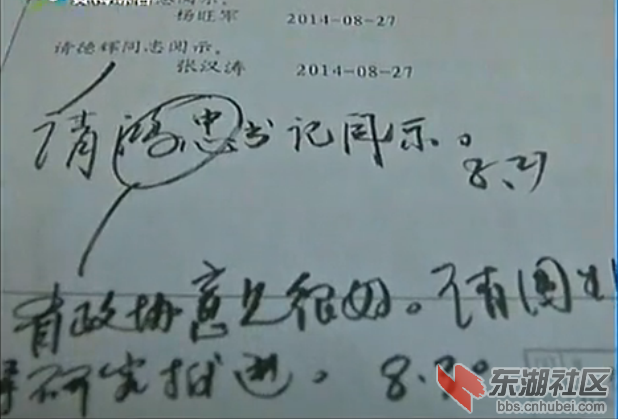 杨旺军 2014-08-27
请德辉同志阅示。
张汉涛 2014-08-27
请鸿忠书记阅示。
8.27
省政协意见很好。请有
研究推进。 8.30
东湖社区
bbs.cnhubei.com